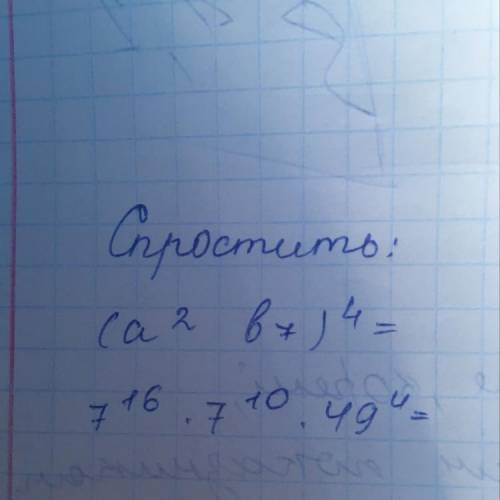 Спростить:
(a² b₇)⁴ =
7¹⁶ · 7¹⁰ · 49⁴ =